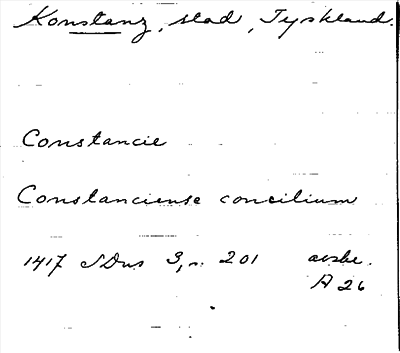 Konstanz, stad, Tyskland.
Constancie
Constanciense concilium
1417 SDns 3, n. 201 avskr.
A 26